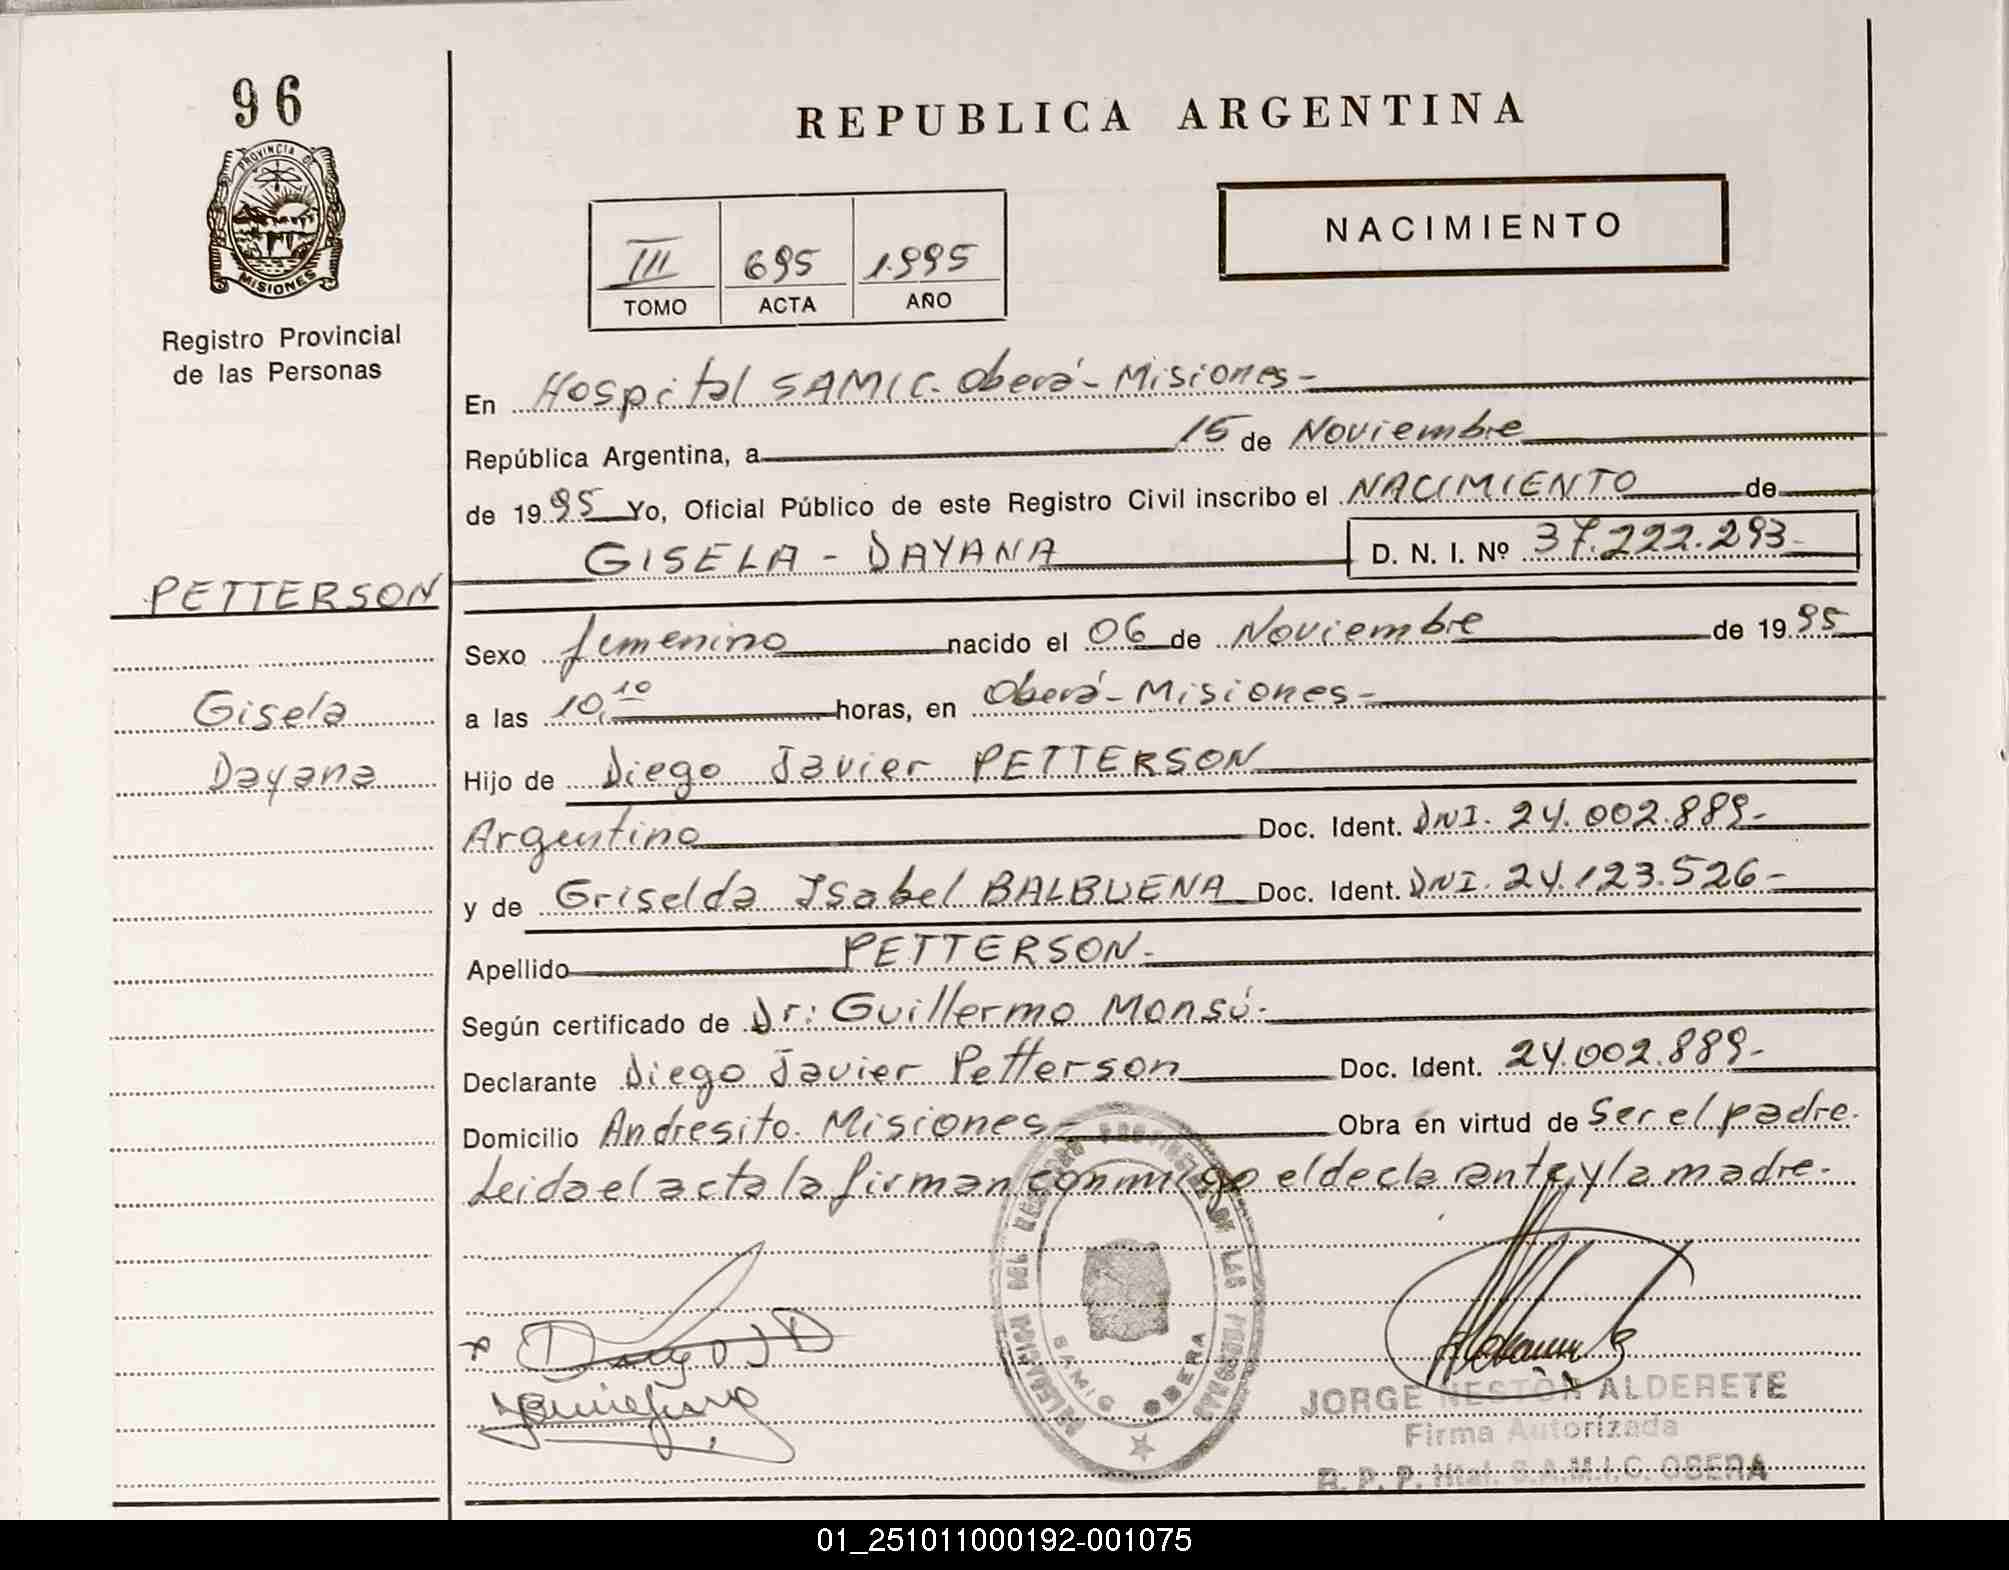 96
PROVINCIA DE
MISIONES
Registro Provincial
de las Personas
PETTERSON
Gisela
Dayana
REPUBLICA ARGENTINA
NACIMIENTO
III 695 1.995
TOMO ACTA AÑO
En Hospital SAMIC. Oberá - Misiones -
República Argentina, a 15 de Noviembre
de 1995 Yo, Oficial Público de este Registro Civil inscribo el NACIMIENTO de
GISELA - DAYANA D. N. I. Nº 37.222.293-
Sexo femenino nacido el 06 de Noviembre de 1995
a las 10,10 horas, en Oberá - Misiones -
Hijo de Diego Javier PETTERSON
Argentino Doc. Ident. DNI. 24.002.889-
y de Griselda Isabel BALBUENA Doc. Ident. DNI. 24.123.526-
Apellido PETTERSON-
Según certificado de Dr: Guillermo Monsú-
Declarante Diego Javier Petterson Doc. Ident. 24.002.889-
Domicilio Andresito. Misiones- Obra en virtud de Ser el padre.
Leida el acta la firman conmigo el declarante, y la madre.
SAMIC OBERA
JORGE NESTOR ALDERETE
Firma Autorizada
R. P. P. Htal. S.A.M.I.C. OBERA
01_251011000192-001075